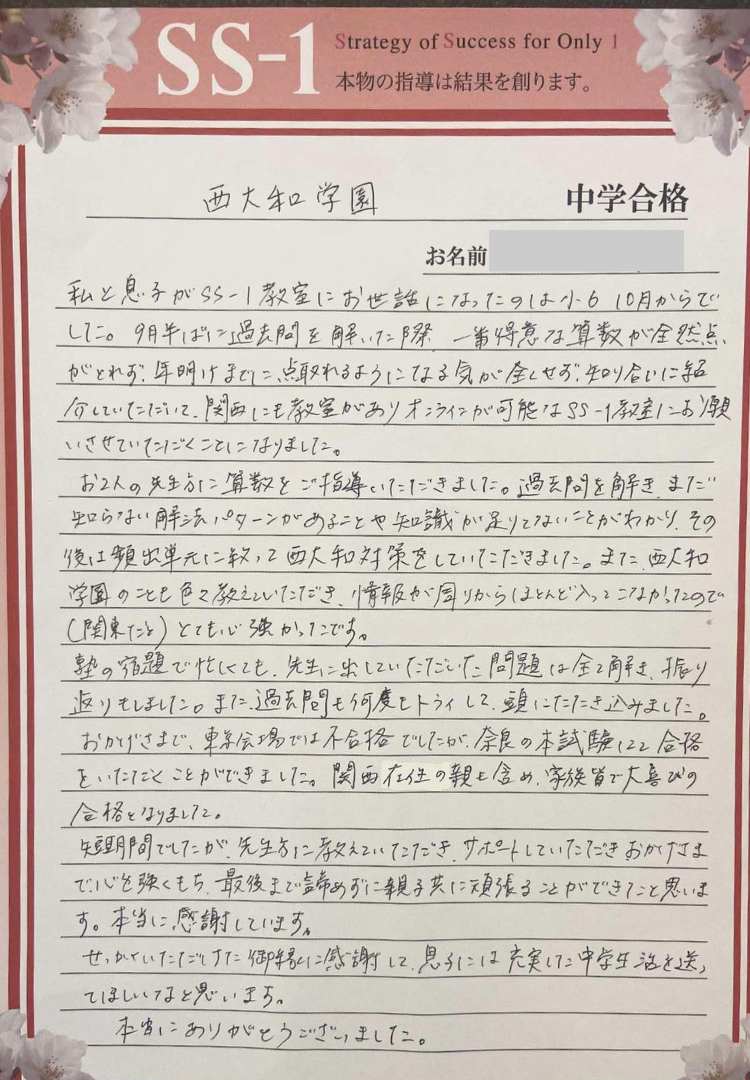 SS-1
Strategy of Success for Only 1
本物の指導は結果を創ります。
西大和学園 中学合格
お名前
私と息子がSS-1教室にお世話になったのは小6 10月からで
した。9月半ばに過去問を解いた際、一番得意な算数が全然点
がとれず、年明けまでに点取れるようになる気が全くせず、知り合いに紹
介していただいて、関西にも教室がありオンラインが可能なSS-1教室にお願
いさせていただくことになりました。
お2人の先生方に算数をご指導いただきました。過去問を解き、まだ
知らない解法パターンがあることや知識が足りてないことがわかり、その
後は頻出単元に絞って西大和対策をしていただきました。また、西大和
学園のことも色々教えていただき、情報が周りからほとんど入ってこなかったので
(関東だと)とても心強かったです。
塾の宿題で忙しくても、先生に出していただいた問題は全て解き、振り
返りもしました。また、過去問も何度もトライして、頭にたたき込みました。
おかげさまで、東京会場では不合格でしたが、奈良の本試験にて合格
をいただくことができました。関西在住の親も含め、家族皆で大喜びの
合格となりました。
短期間でしたが、先生方に教えていただき、サポートしていただきおかげさま
で心を強くもち、最後まで諦めずに親子共に頑張ることができたこと思いま
す。本当に感謝しています。
せっかくいただけた御縁に感謝して、息子には充実した中学生活を送っ
てほしいなと思います。
本当にありがとうございました。